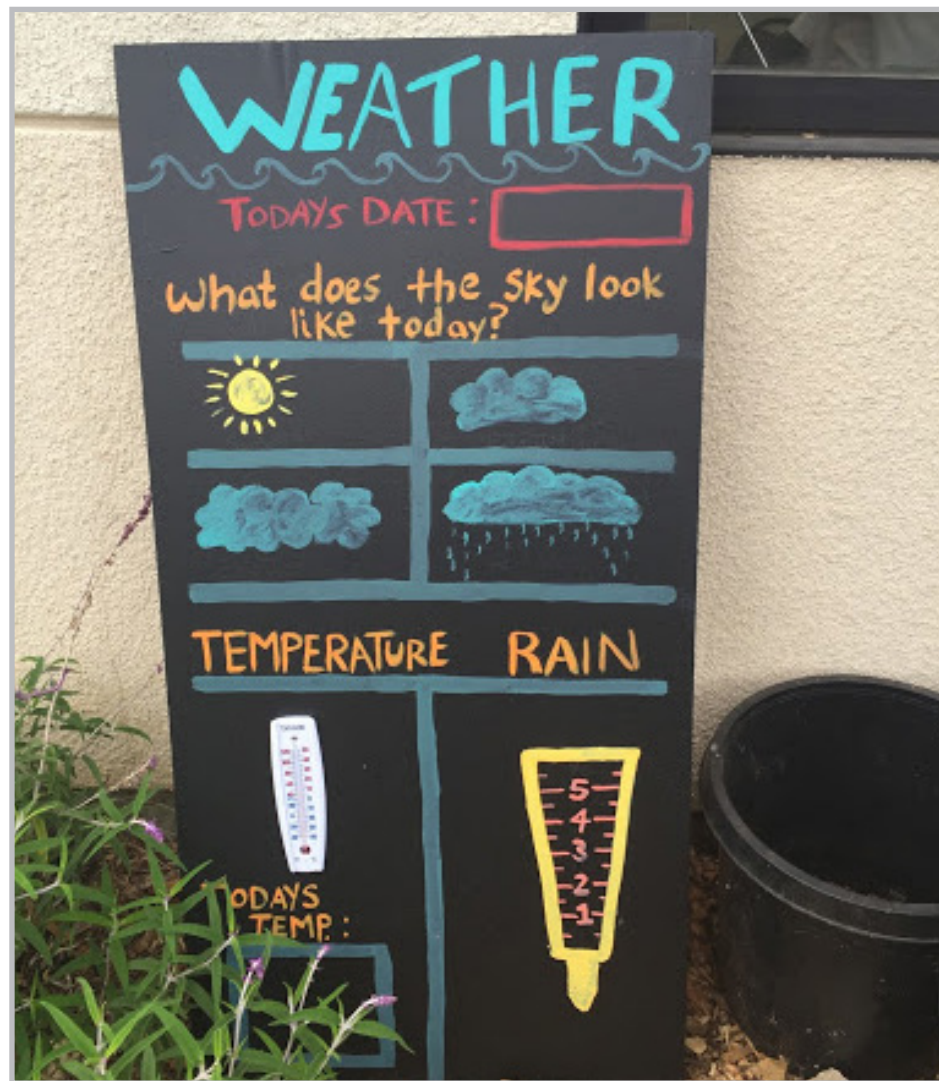 WEATHER
TODAYS DATE:
What does the sky look
like today?
TEMPERATURE RAIN
5
4
3
2
1
TODAYS
TEMP.: